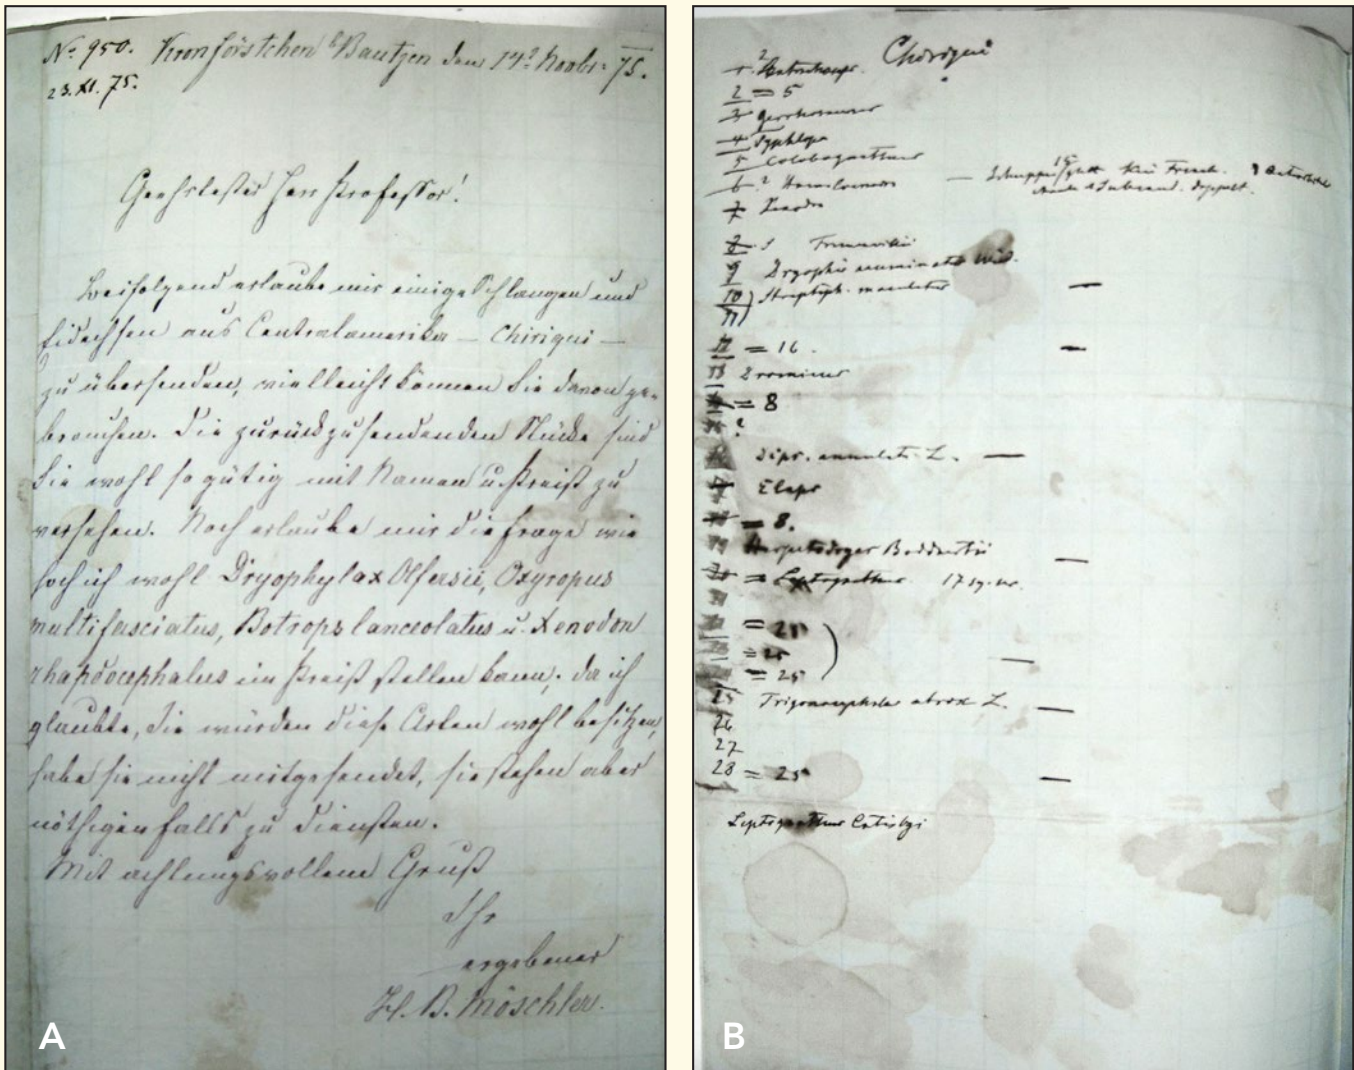 No 950. Kronförstchen b/Bautzen den 14t Novbr. 75.
23. XI. 75.
Geehrtester Herr Professor!
Beifolgend erlaube mir einige Schlangen und
Eidechsen aus Centralamerika — Chiriqui —
zu übersenden, vielleicht können Sie davon ge-
brauchen. Die zurückzusendenden Stücke sind
Sie wohl so gütig mit Namen u. Preiß zu
versehen. Noch erlaube mir die Frage wie
hoch ich wohl Dryophylax Olfersii, Oxyropus
multifasciatus, Botrops lanceolatus u. Xenodon
rhapdocephalus im Preiß stellen kann; da ich
glaubte, Sie würden diese Arten wohl besitzen,
habe sie nicht mitgesendet, sie stehen aber
nöthigenfalls zu Diensten.
Mit achtungsvollem Gruß
Ihr
ergebener
H. B. Möschler.
A
Chiriqui
1.
2 = 5
3 Gerrhonotus
4 Typhlops
5 Colobognathus
6 ?
7
8
9 Dryophis acuminata Wied.
10)
11)
12 = 16.
13 Dromicus
= 8
?
Dips. annulata L. —
Elaps
= 8.
Herpetodryas Boddaertii —
= Leptognathus
= 25
= 25
= 25
25 Trigonocephalus atrox L. —
26
27
28 = 25 —
Leptognathus Catesbyi
B